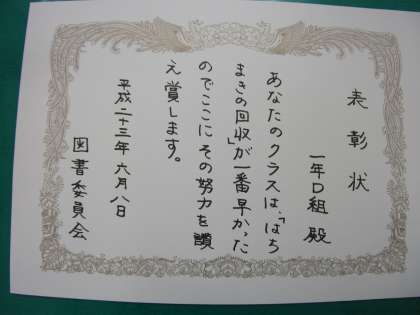 表彰状
一年D組 殿
あなたのクラスは、「はち
まきの回収」が一番早かった
のでここにその努力を讃
え賞します。
平成二十三年六月八日
図書委員会